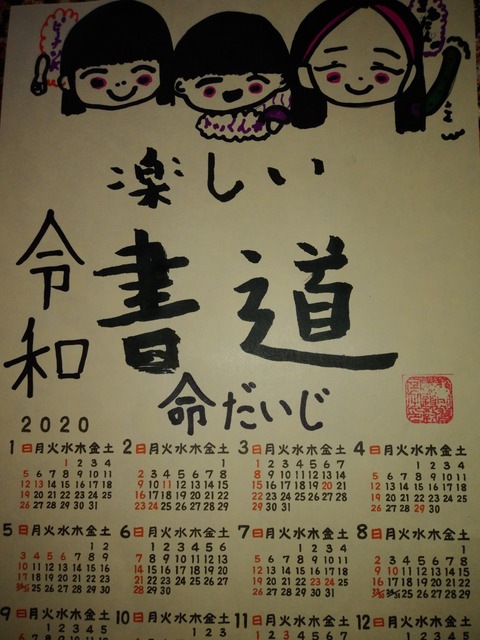 楽しい
令和
書道
命だいじ
2020
1 日月火水木金土 2 日月火水木金土 3 日月火水木金土 4 日月火水木金土
1 2 3 4 1 1 2 3 4 5 6 7 1 2 3 4
5 6 7 8 9 10 11 2 3 4 5 6 7 8 8 9 10 11 12 13 14 5 6 7 8 9 10 11
12 13 14 15 16 17 18 9 10 11 12 13 14 15 15 16 17 18 19 20 21 12 13 14 15 16 17 18
19 20 21 22 23 24 25 16 17 18 19 20 21 22 22 23 24 25 26 27 28 19 20 21 22 23 24 25
26 27 28 29 30 31 23 24 25 26 27 28 29 29 30 31 26 27 28 29 30
5 日月火水木金土 6 日月火水木金土 7 日月火水木金土 8 日月火水木金土
1 2 1 2 3 4 5 6 1 2 3 4 1
3 4 5 6 7 8 9 7 8 9 10 11 12 13 5 6 7 8 9 10 11 2 3 4 5 6 7 8
10 11 12 13 14 15 16 14 15 16 17 18 19 20 12 13 14 15 16 17 18 9 10 11 12 13 14 15
17 18 19 20 21 22 23 21 22 23 24 25 26 27 19 20 21 22 23 24 25 16 17 18 19 20 21 22
24/31 25 26 27 28 29 30 28 29 30 26 27 28 29 30 31 23/30 24/31 25 26 27 28 29
9 日月火水木金土 10 日月火水木金土 11 日月火水木金土 12 日月火水木金土
1 2 3 4 5 1 2 3 1 2 3 4 5 6 7 1 2 3 4 5